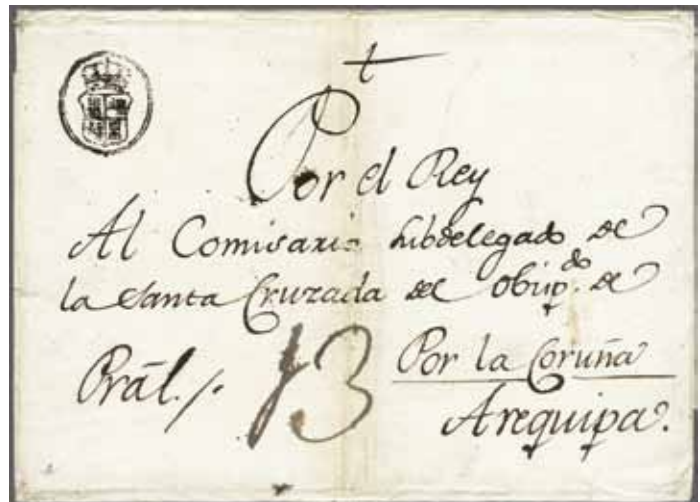 Por el Rey
Al Comisario subdelegado de
la Santa Cruzada del Obisp.do de
Por la Coruña
Prãl./. 13 Arequipa.